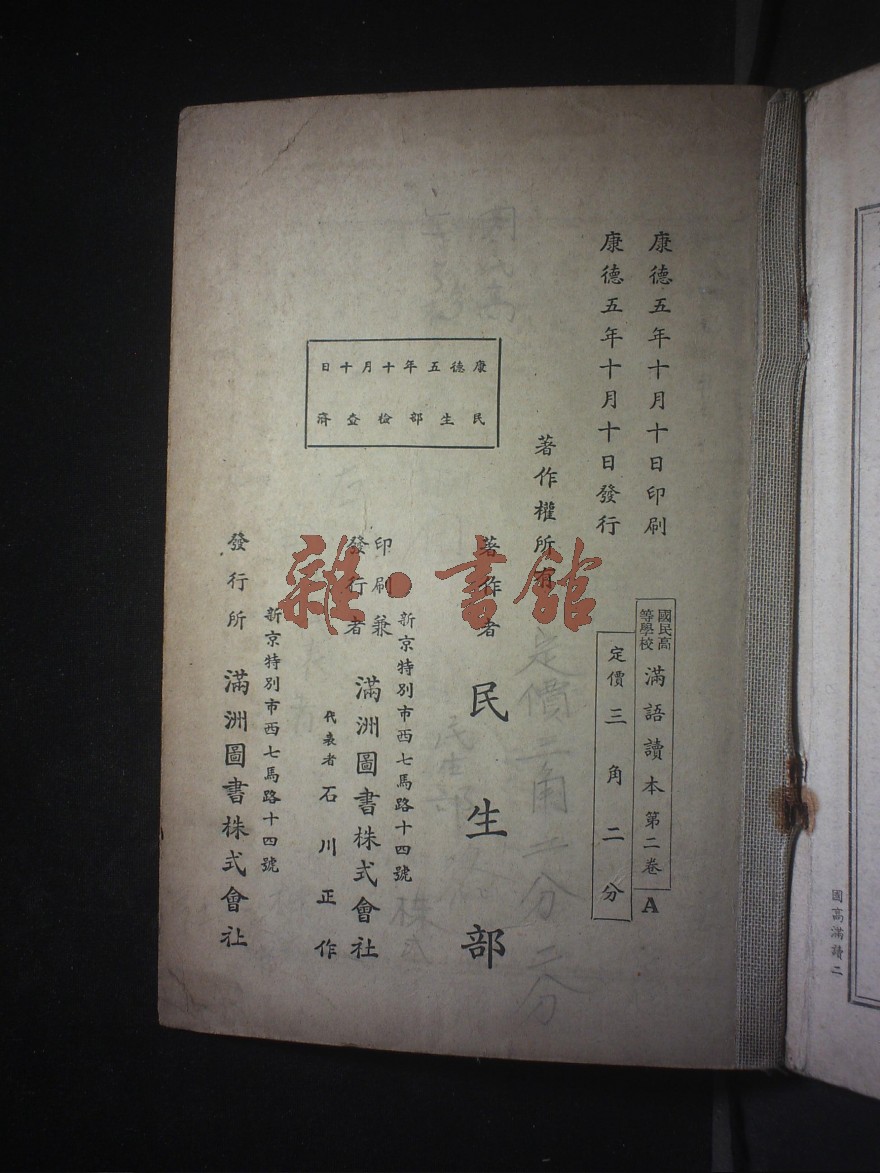 康德五年十月十日印刷
康德五年十月十日發行
國民高等學校 滿語讀本 第二卷 A
定價三角二分
著作權所有
著作者 民生部
康德五年十月十日
民生部檢查濟
新京特別市西七馬路十四號
印刷兼發行者 滿洲圖書株式會社
代表者 石川正作
新京特別市西七馬路十四號
發行所 滿洲圖書株式會社
國高滿讀二
雜·書館
定價三角二分二分
民生部
株式